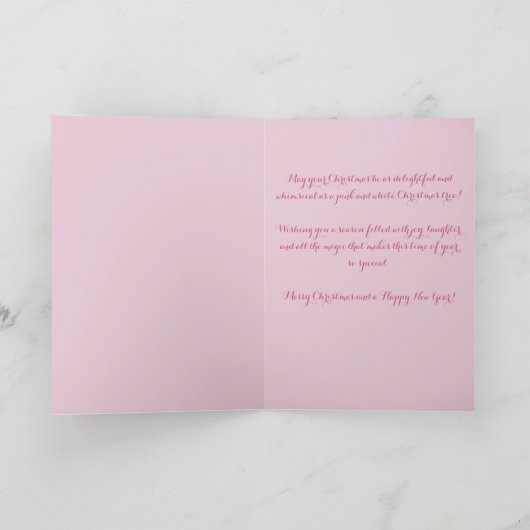 May your Christmas be as delightful and
whimsical as a pink and white Christmas tree!
Wishing you a season filled with joy, laughter,
and all the magic that makes this time of year
so special.
Merry Christmas and a Happy New Year!